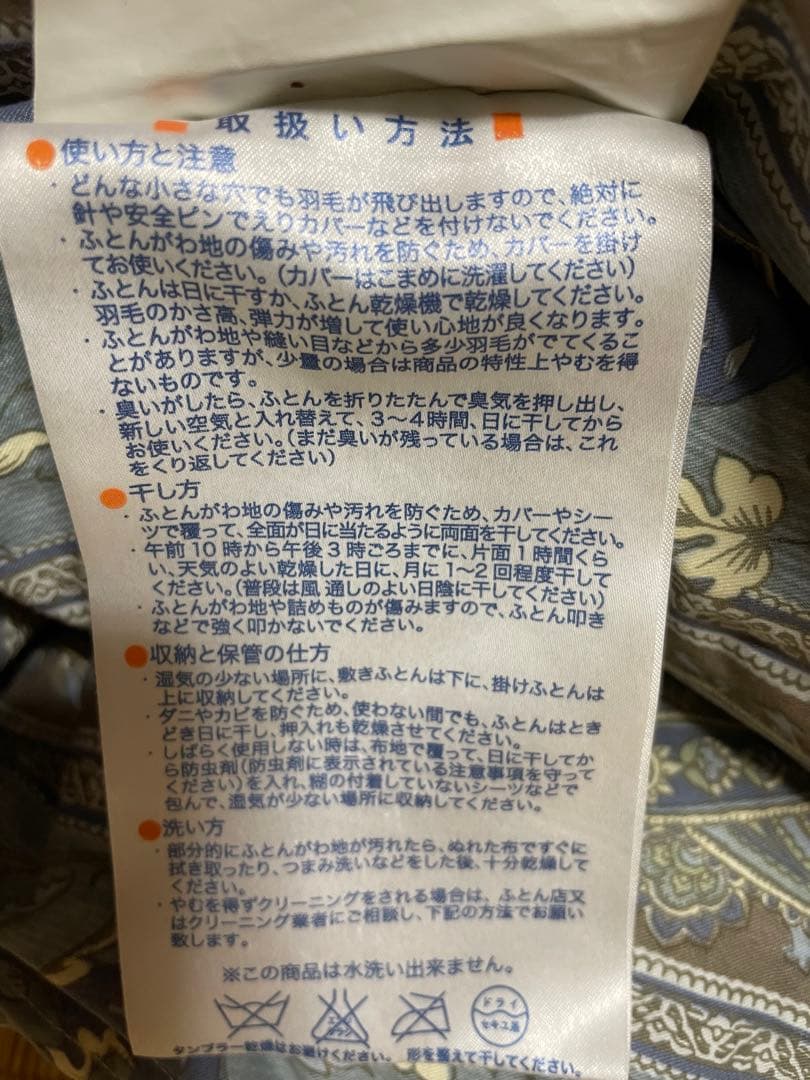 取扱い方法
使い方と注意
・どんな小さな穴でも羽毛が飛び出しますので、絶対に
針や安全ピンでえりカバーなどを付けないでください。
・ふとんがわ地の傷みや汚れを防ぐため、カバーを掛け
てお使いください。(カバーはこまめに洗濯してください)
・ふとんは日に干すか、ふとん乾燥機で乾燥してください。
羽毛のかさ高、弾力が増して使い心地が良くなります。
・ふとんがわ地や縫い目などから多少羽毛がでてくるこ
とがありますが、少量の場合は商品の特性上やむを得
ないものです。
・臭いがしたら、ふとんを折りたたんで臭気を押し出し、
新しい空気と入れ替えて、3～4時間、日に干してから
お使いください。(まだ臭いが残っている場合は、これ
をくり返してください)
干し方
・ふとんがわ地の傷みや汚れを防ぐため、カバーやシー
ツで覆って、全面が日に当たるように両面を干してください。
・午前10時から午後3時ごろまでに、片面1時間くら
い、天気のよい乾燥した日に、月に1～2回程度干して
ください。(普段は風通しのよい日陰に干してください)
・ふとんがわ地や詰めものが傷みますので、ふとん叩き
などで強く叩かないでください。
収納と保管の仕方
・湿気の少ない場所に、敷きふとんは下に、掛けふとんは
上に収納してください。
・ダニやカビを防ぐため、使わない間でも、ふとんはとき
どき日に干し、押入れも乾燥させてください。
・しばらく使用しない時は、布地で覆って、日に干してか
ら防虫剤(防虫剤に表示されている注意事項を守って
ください)を入れ、糊の付着していないシーツなどで
包んで、湿気が少ない場所に収納してください。
洗い方
・部分的にふとんがわ地が汚れたら、ぬれた布ですぐに
拭き取ったり、つまみ洗いなどをした後、十分乾燥して
ください。
・やむを得ずクリーニングをされる場合は、ふとん店又
はクリーニング業者にご相談し、下記の方法でお願い
致します。
※この商品は水洗い出来ません。
エンソ
サラシ
ドライ
セキユ系
タンブラー乾燥はお避けください。 形を整えて干してください。